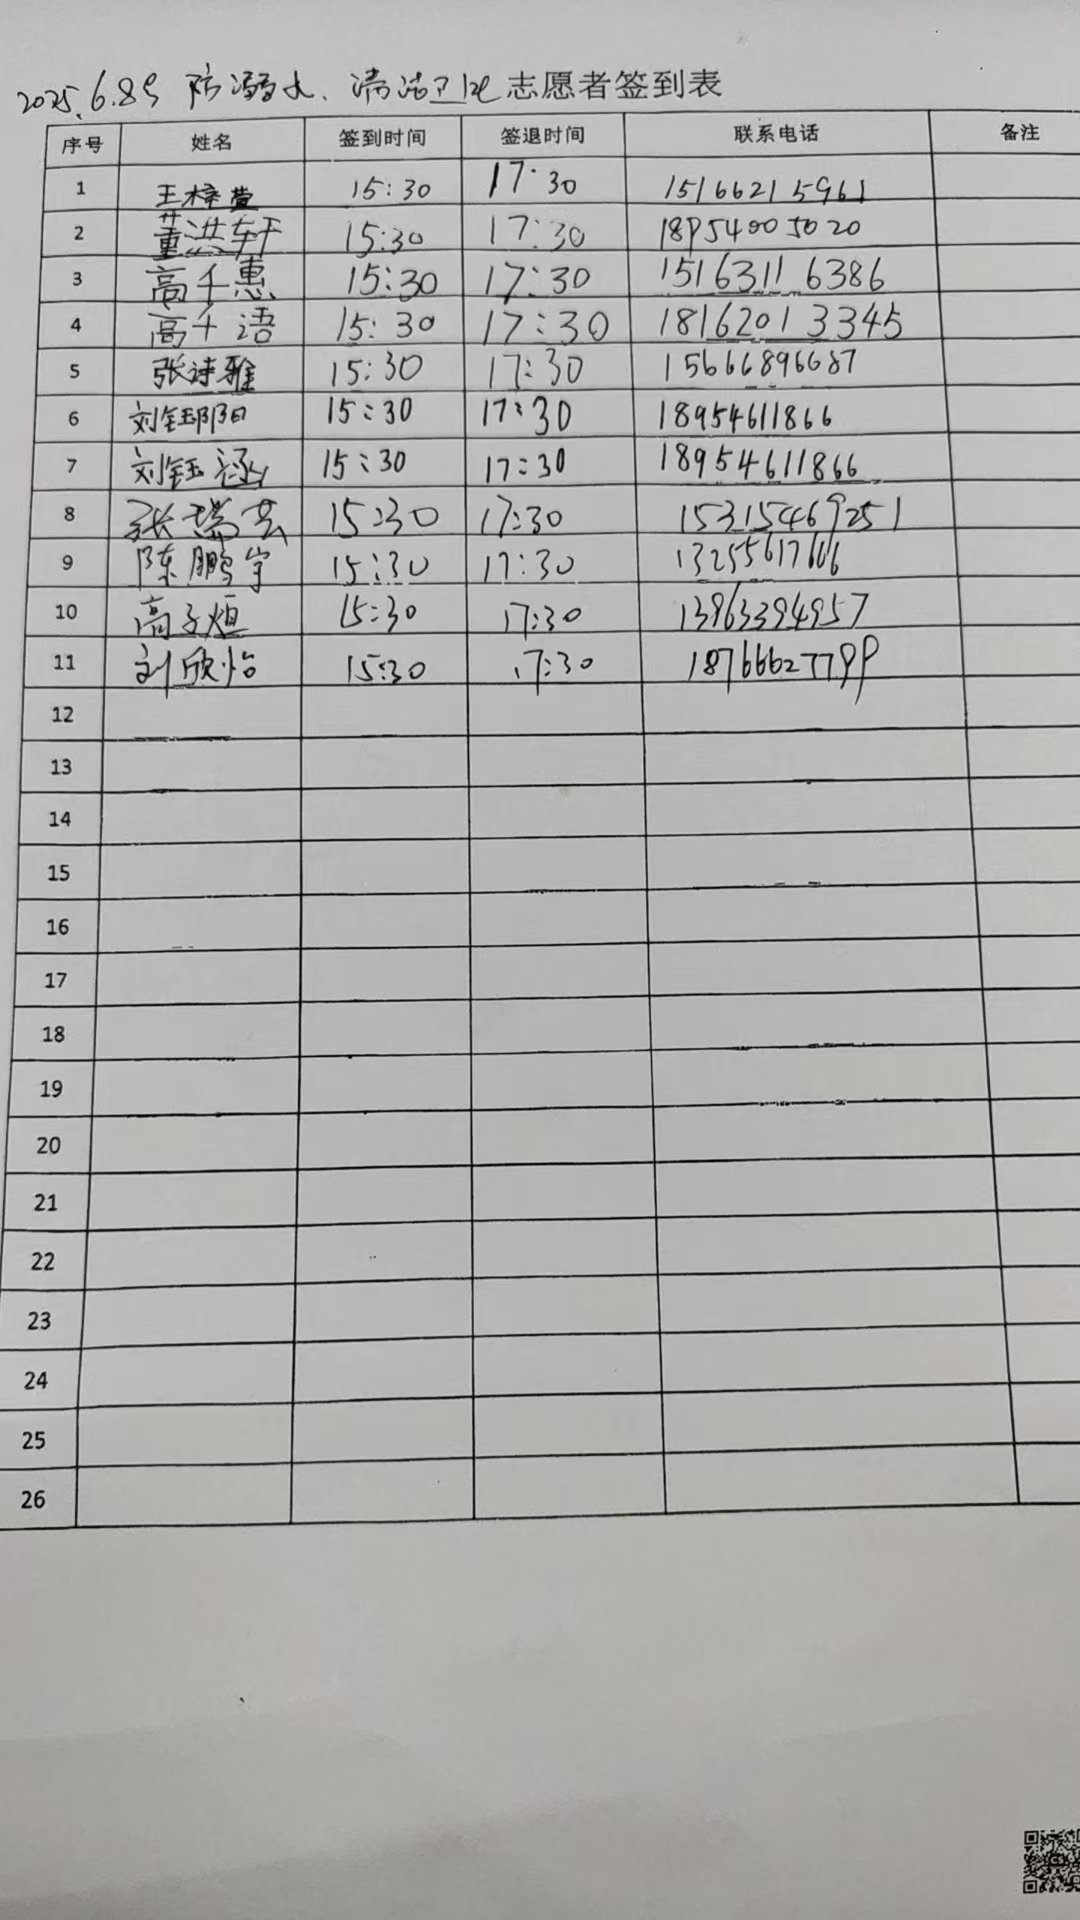 2025.6.8号 防溺水、清洁卫生志愿者签到表
序号 姓名 签到时间 签退时间 联系电话 备注
1 王梓萱 15:30 17:30 15166215961
2 董洪轩 15:30 17:30 18954005020
3 高千惠 15:30 17:30 15163116386
4 高千语 15:30 17:30 18162013345
5 张诗雅 15:30 17:30 15666896687
6 刘钰阳 15:30 17:30 18954611866
7 刘钰涵 15:30 17:30 18954611866
8 张瑞芸 15:30 17:30 15315469251
9 陈鹏宇 15:30 17:30 13255617606
10 高子烜 15:30 17:30 13963394957
11 刘欣怡 15:30 17:30 18766627799
12
13
14
15
16
17
18
19
20
21
22
23
24
25
26